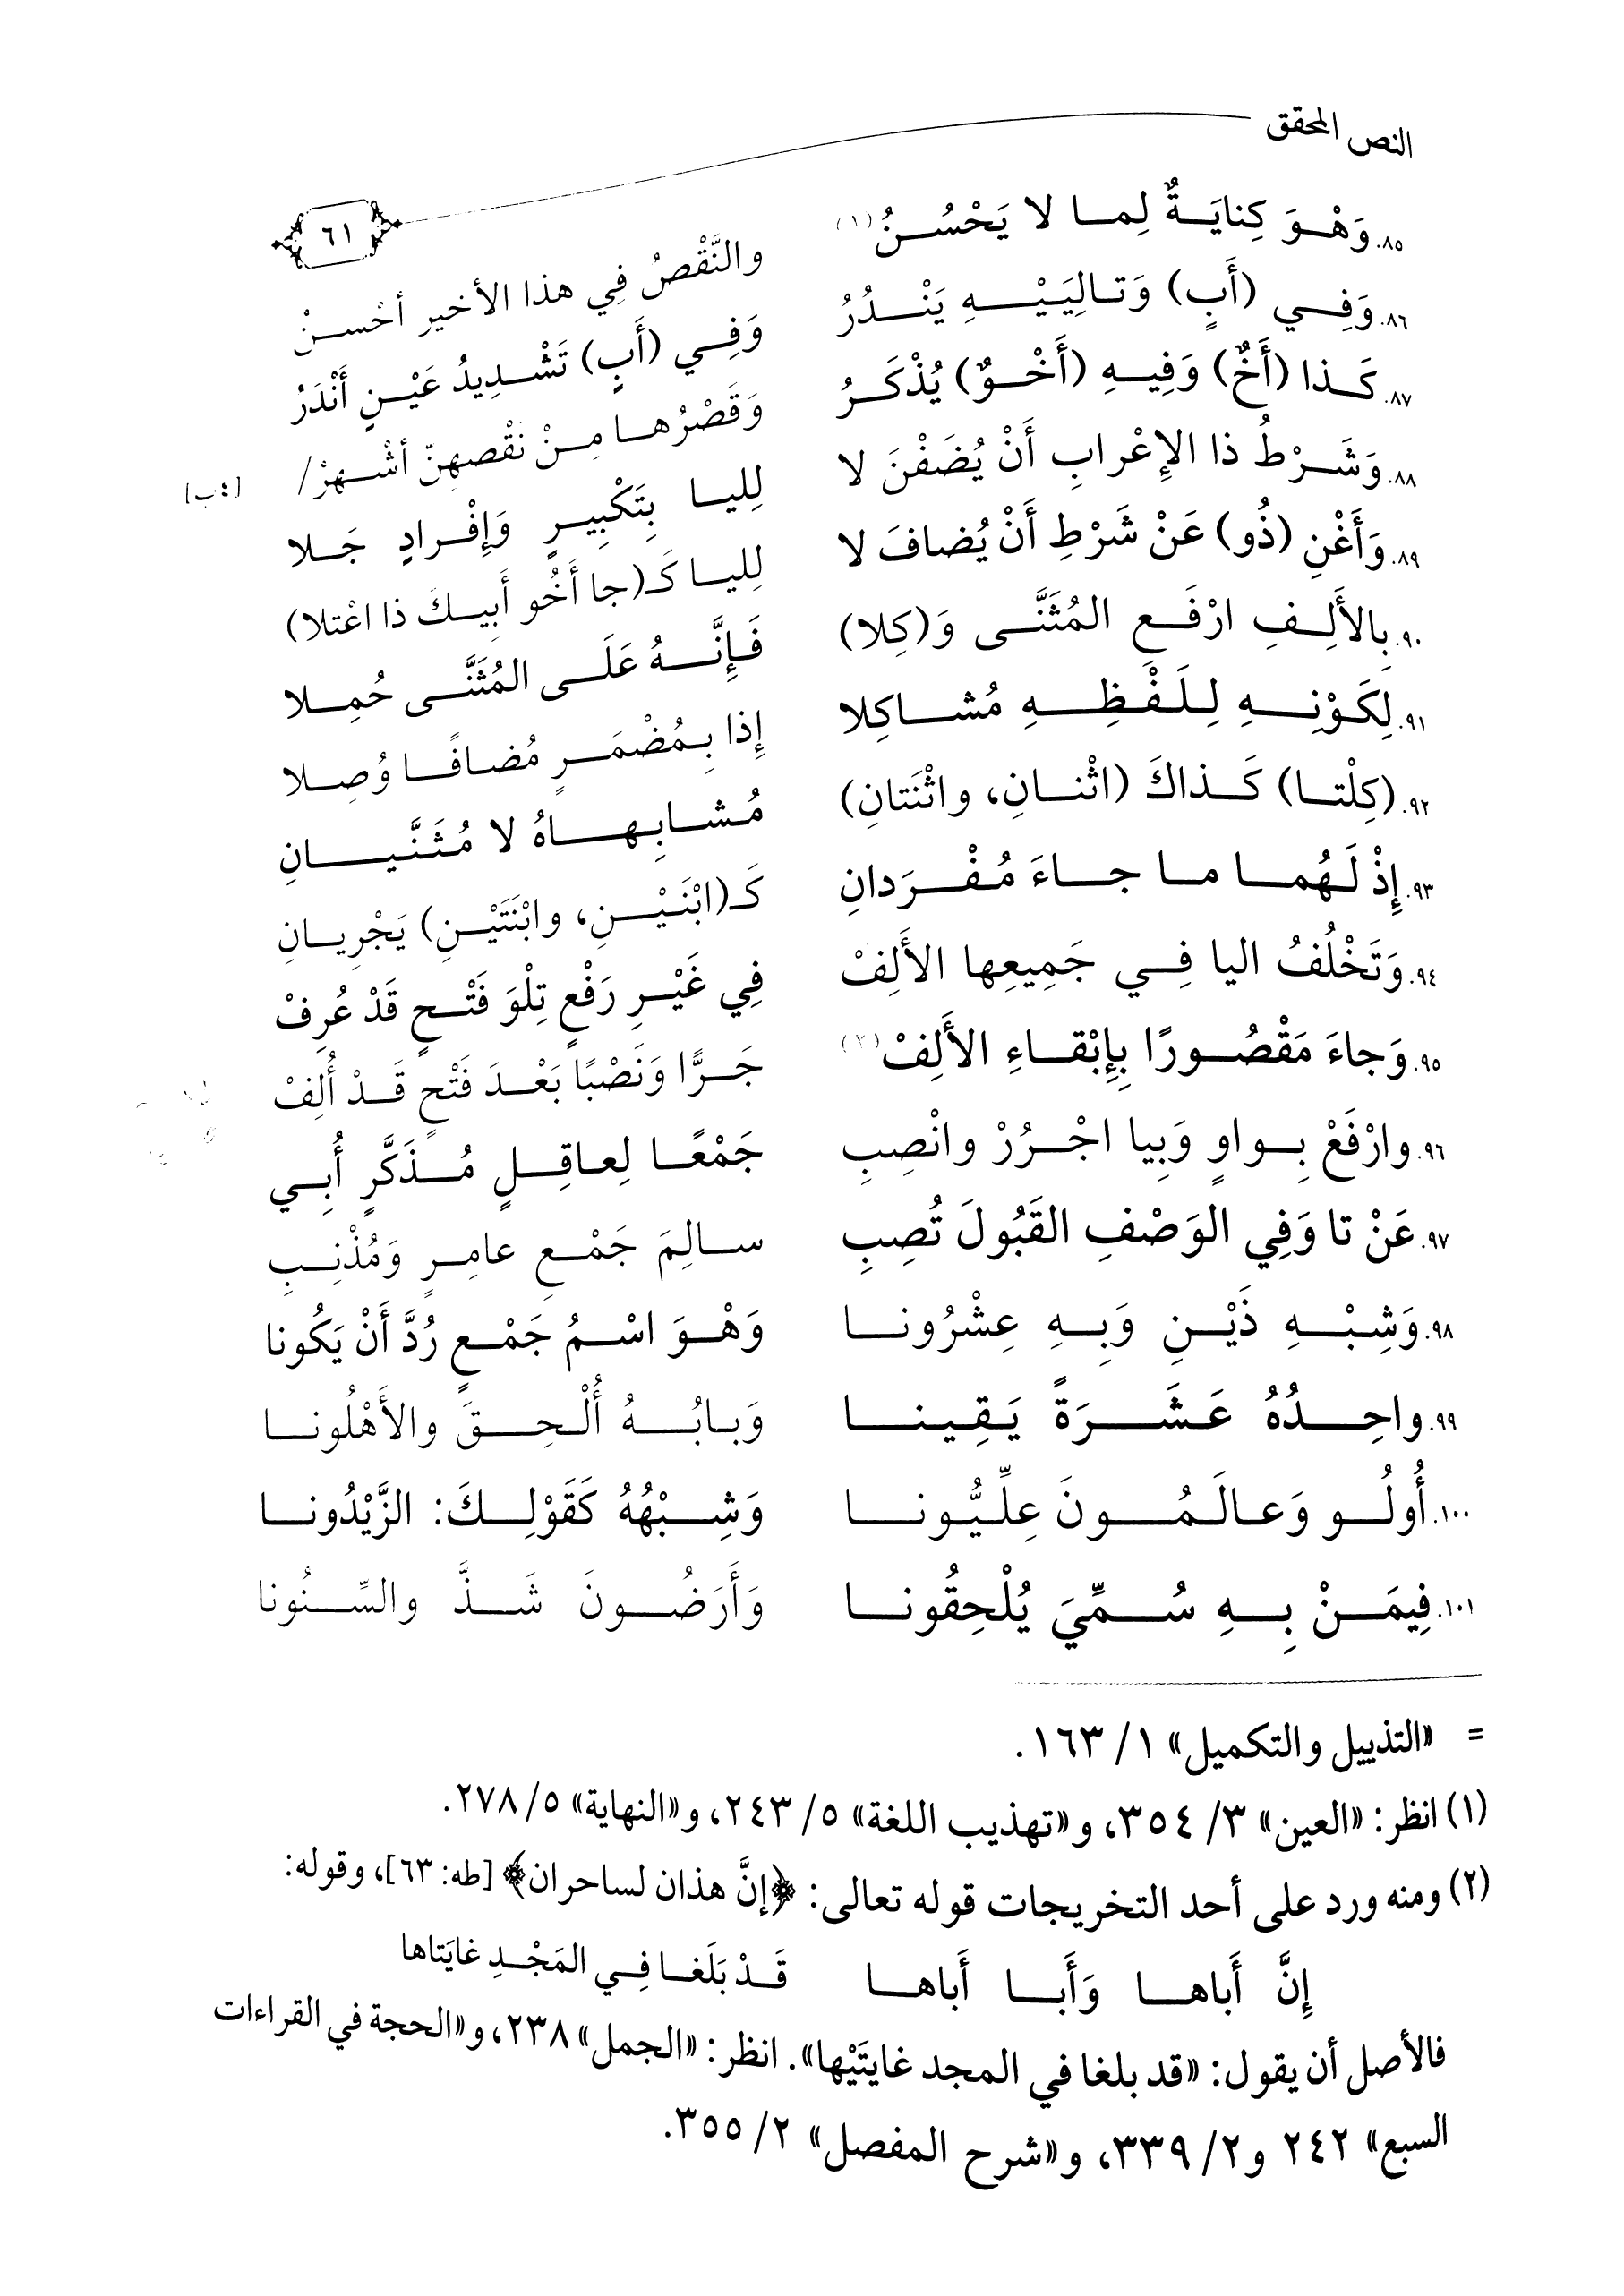 النص المحقق
٦١
٨٥. وَهْوَ كِنايَةٌ لِما لا يَحْسُنُ(١) والنَّقْصُ فِي هذا الأخير أحْسنْ
٨٦. وَفِي (أَبٍ) وَتالِيَيْهِ يَنْدُرُ وَفِي (أَبٍ) تَشْدِيدُ عَيْنٍ أَنْدَرُ
٨٧. كَذا (أَخٌ) وَفِيهِ (أَخْوٌ) يُذْكَرُ وَقَصْرُها مِنْ نَقْصهِنّ أشْهرْ/ [٤ب]
٨٨. وَشَرْطُ ذا الإِعْرابِ أَنْ يُضَفْنَ لا لِليا بِتَكْبِيرٍ وَإِفْرادٍ جَلا
٨٩. وَأَغْنِ (ذُو) عَنْ شَرْطِ أَنْ يُضافَ لا لِليا كَـ(جا أَخُو أَبِيكَ ذا اعْتلا)
٩٠. بِالأَلِفِ ارْفَعِ المُثَنَّى وَ(كِلا) فَإِنَّهُ عَلَى المُثَنَّى حُمِلا
٩١. لِكَوْنِهِ لِلَفْظِهِ مُشاكِلا إِذا بِمُضْمَرٍ مُضافًا وُصِلا
٩٢. (كِلْتا) كَذاكَ (اثْنانِ، واثْنَتانِ) مُشابِهاهُ لا مُثَنَّيانِ
٩٣. إِذْ لَهُما ما جاءَ مُفْرَدانِ كَـ(ابْنَيْنِ، وابْنَتَيْنِ) يَجْرِيانِ
٩٤. وَتَخْلُفُ اليا فِي جَمِيعِها الأَلِفْ فِي غَيْرِ رَفْعٍ تِلْوَ فَتْحٍ قَدْ عُرِفْ
٩٥. وَجاءَ مَقْصُورًا بِإِبْقاءِ الأَلِفْ(٢) جَرًّا وَنَصْبًا بَعْدَ فَتْحٍ قَدْ أُلِفْ
٩٦. وارْفَعْ بِواوٍ وَبِيا اجْرُرْ وانْصِبِ جَمْعًا لِعاقِلٍ مُذَكَّرٍ أُبِي
٩٧. عَنْ تا وَفِي الوَصْفِ القَبُولَ تُصِبِ سالِمَ جَمْعِ عامِرٍ وَمُذْنِبِ
٩٨. وَشِبْهِ ذَيْنِ وَبِهِ عِشْرُونا وَهْوَ اسْمُ جَمْعٍ رُدَّ أَنْ يَكُونا
٩٩. واحِدُهُ عَشَرَةً يَقِينا وَبابُهُ أُلْحِقَ والأَهْلُونا
١٠٠. أُولُو وَعالَمُونَ عِلِّيُّونا وَشِبْهُهُ كَقَوْلِكَ: الزَّيْدُونا
١٠١. فِيمَنْ بِهِ سُمِّيَ يُلْحِقُونا وَأَرَضُونَ شَذَّ والسِّنُونا
= «التذييل والتكميل» ١/ ١٦٣.
(١) انظر: «العين» ٣/ ٣٥٤، و«تهذيب اللغة» ٥/ ٢٤٣، و«النهاية» ٥/ ٢٧٨.
(٢) ومنه ورد على أحد التخريجات قوله تعالى: ﴿إنَّ هذان لساحران﴾ [طه: ٦٣]، وقوله:
إِنَّ أَباها وَأَبا أَباها قَدْ بَلَغا فِي المَجْدِ غايَتاها
فالأصل أن يقول: «قد بلغا في المجد غايتَيْها». انظر: «الجمل» ٢٣٨، و«الحجة في القراءات
السبع» ٢٤٢ و٢/ ٣٣٩، و«شرح المفصل» ٢/ ٣٥٥.